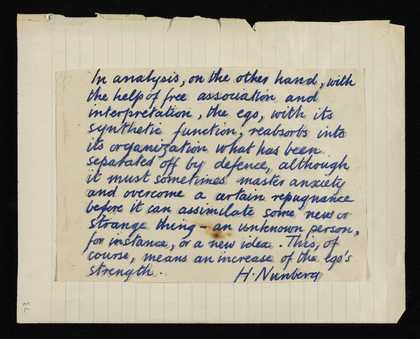 In analysis, on the other hand, with
the help of free association and
interpretation, the ego, with its
synthetic function, reabsorbs into
its organization what has been
separated off by defence, although
it must sometimes master anxiety
and overcome a certain repugnance
before it can assimilate some new or
strange thing – an unknown person,
for instance, or a new idea. This, of
course, means an increase of the ego's
strength. H. Nunberg